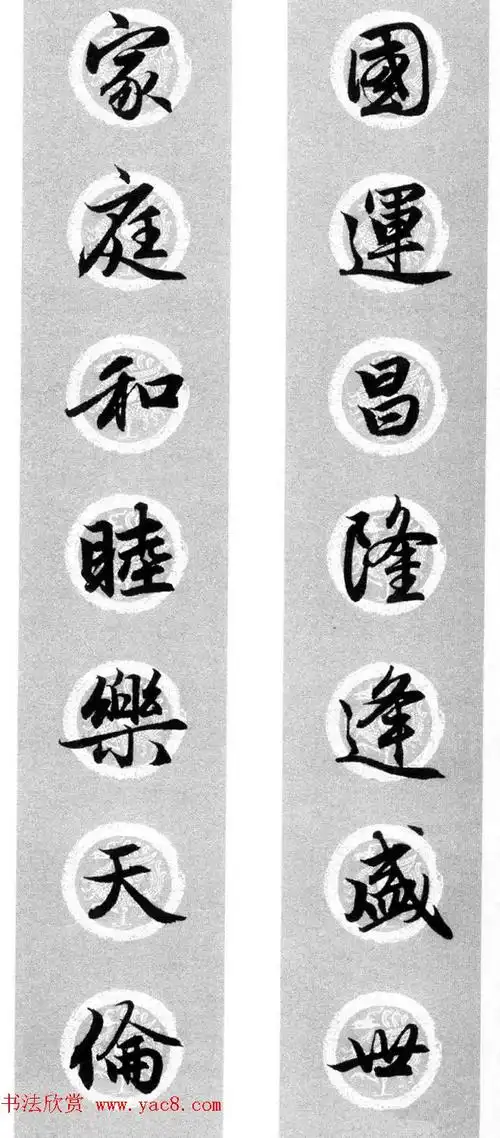 國運昌隆逢盛世
家庭和睦樂天倫
书法欣赏 www.yac8.com